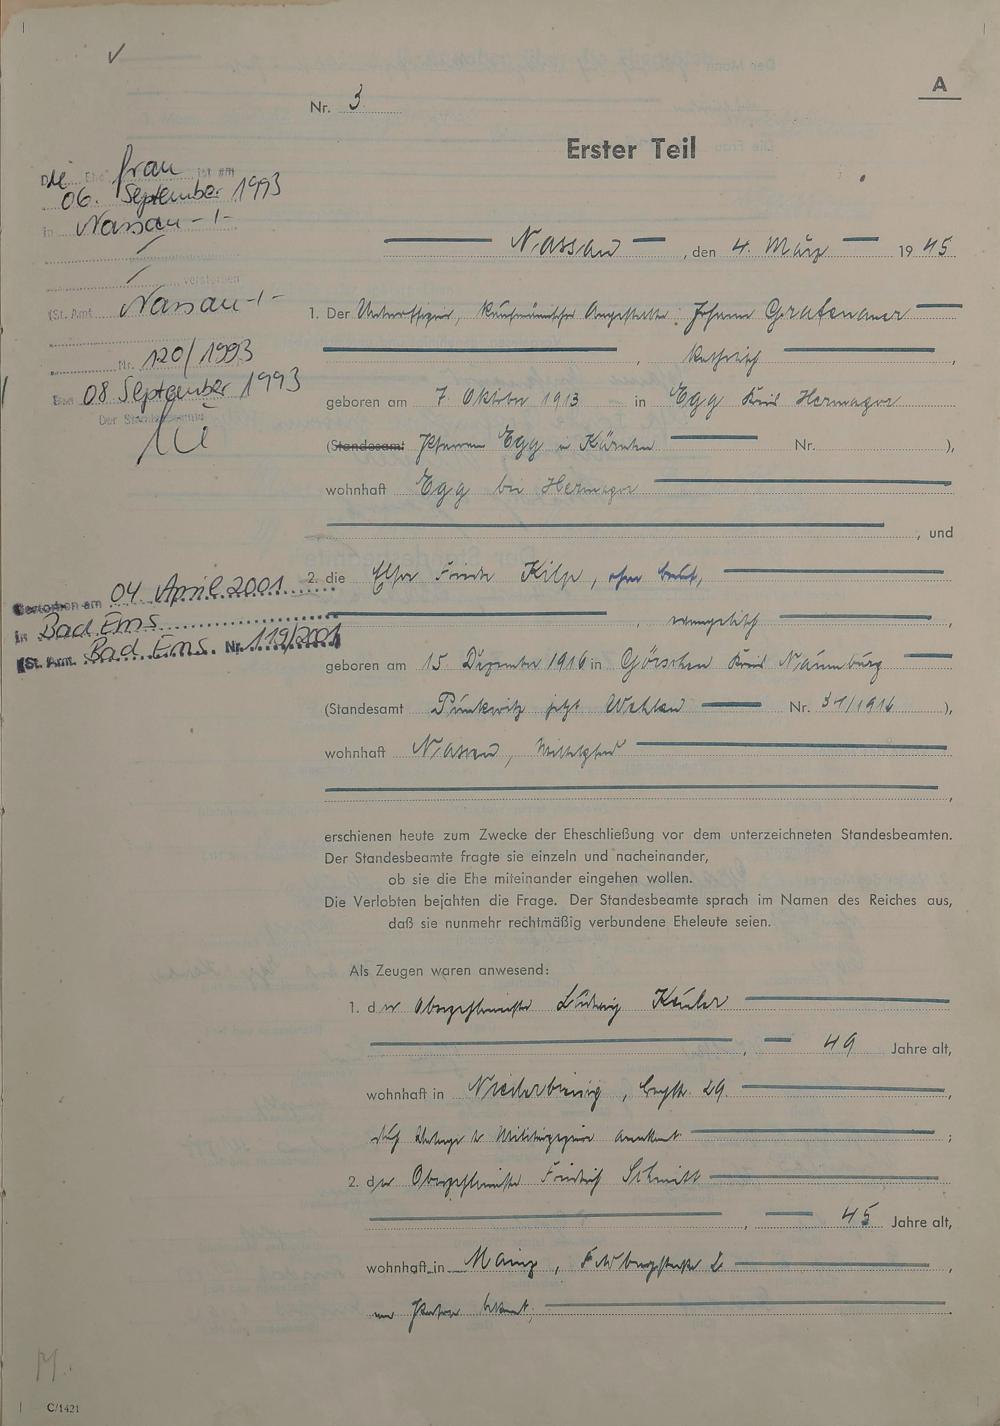 A
Nr. 3
Erster Teil
Die Ehefrau ist am
06. September 1993
in Nassau -/-
verstorben
(St. Amt Nassau -/-
Nr. 120/1993
08 September 1993
Der Standesbeamte
Nassau, den 4. März 1945
1. Der Unteroffizier, kaufmännischer Angestellte Johann Grafenauer
, katholisch ,
geboren am 7. Oktober 1913 in Egg Kreis Hermagor
(Standesamt Pfarramt Egg in Kärnten Nr. ),
wohnhaft Egg bei Hermagor
, und
2. die Elsa Frieda Kilp, ohne Beruf,
, evangelisch ,
geboren am 15. Dezember 1916 in Görschen Kreis Naumburg
(Standesamt Punkewitz jetzt Wethau Nr. 31/1916 ),
wohnhaft Nassau,
,
Gestorben am 04. April 2001
in Bad Ems
(St. Amt. Bad Ems. Nr. 119/2001
erschienen heute zum Zwecke der Eheschließung vor dem unterzeichneten Standesbeamten.
Der Standesbeamte fragte sie einzeln und nacheinander,
ob sie die Ehe miteinander eingehen wollen.
Die Verlobten bejahten die Frage. Der Standesbeamte sprach im Namen des Reiches aus,
daß sie nunmehr rechtmäßig verbundene Eheleute seien.
Als Zeugen waren anwesend:
1. der Oberzahlmeister Ludwig
, 49 Jahre alt,
wohnhaft in 29. ,
anerkannt ;
2. der Oberzahlmeister Friedrich Schmitt
, 45 Jahre alt,
wohnhaft in Mainz, 2 ,
von Person bekannt.
C/1421